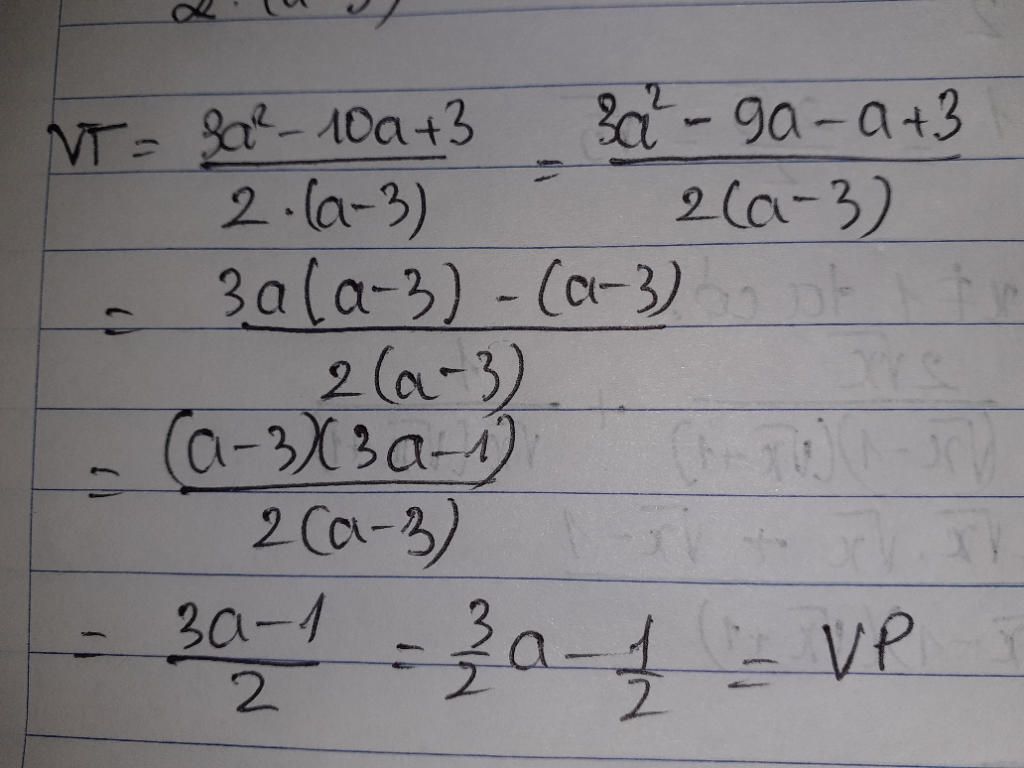 VT = (3a² - 10a + 3)/(2.(a-3)) = (3a² - 9a - a + 3)/(2(a-3))
= (3a(a-3) - (a-3))/(2(a-3))
= ((a-3)(3a-1))/(2(a-3))
= (3a-1)/2 = 3/2 a - 1/2 = VP